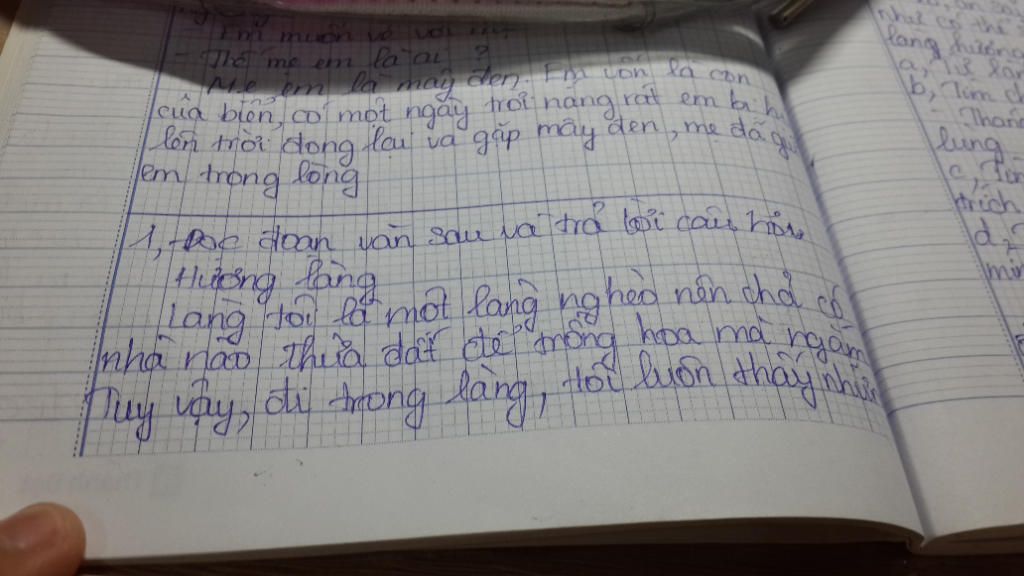 Em muốn về với
- Thế mẹ em là ai ?
Mẹ em là mây đen. Em vốn là con
của biển, có một ngày trời nắng rát em b
lên trời đọng lại và gặp mây đen, mẹ đã gi
em trong lòng
1, Đọc đoạn văn sau và trả lời câu hỏi
Hương làng
Làng tôi là một làng nghèo nên chả có
nhà nào thừa đất để trồng hoa mà ngắm
Tuy vậy, đi trong làng, tôi luôn thấy những
như có thể
làng hương
a,
b, Tìm
- Thang
lung
c, Tìm
trích
d,